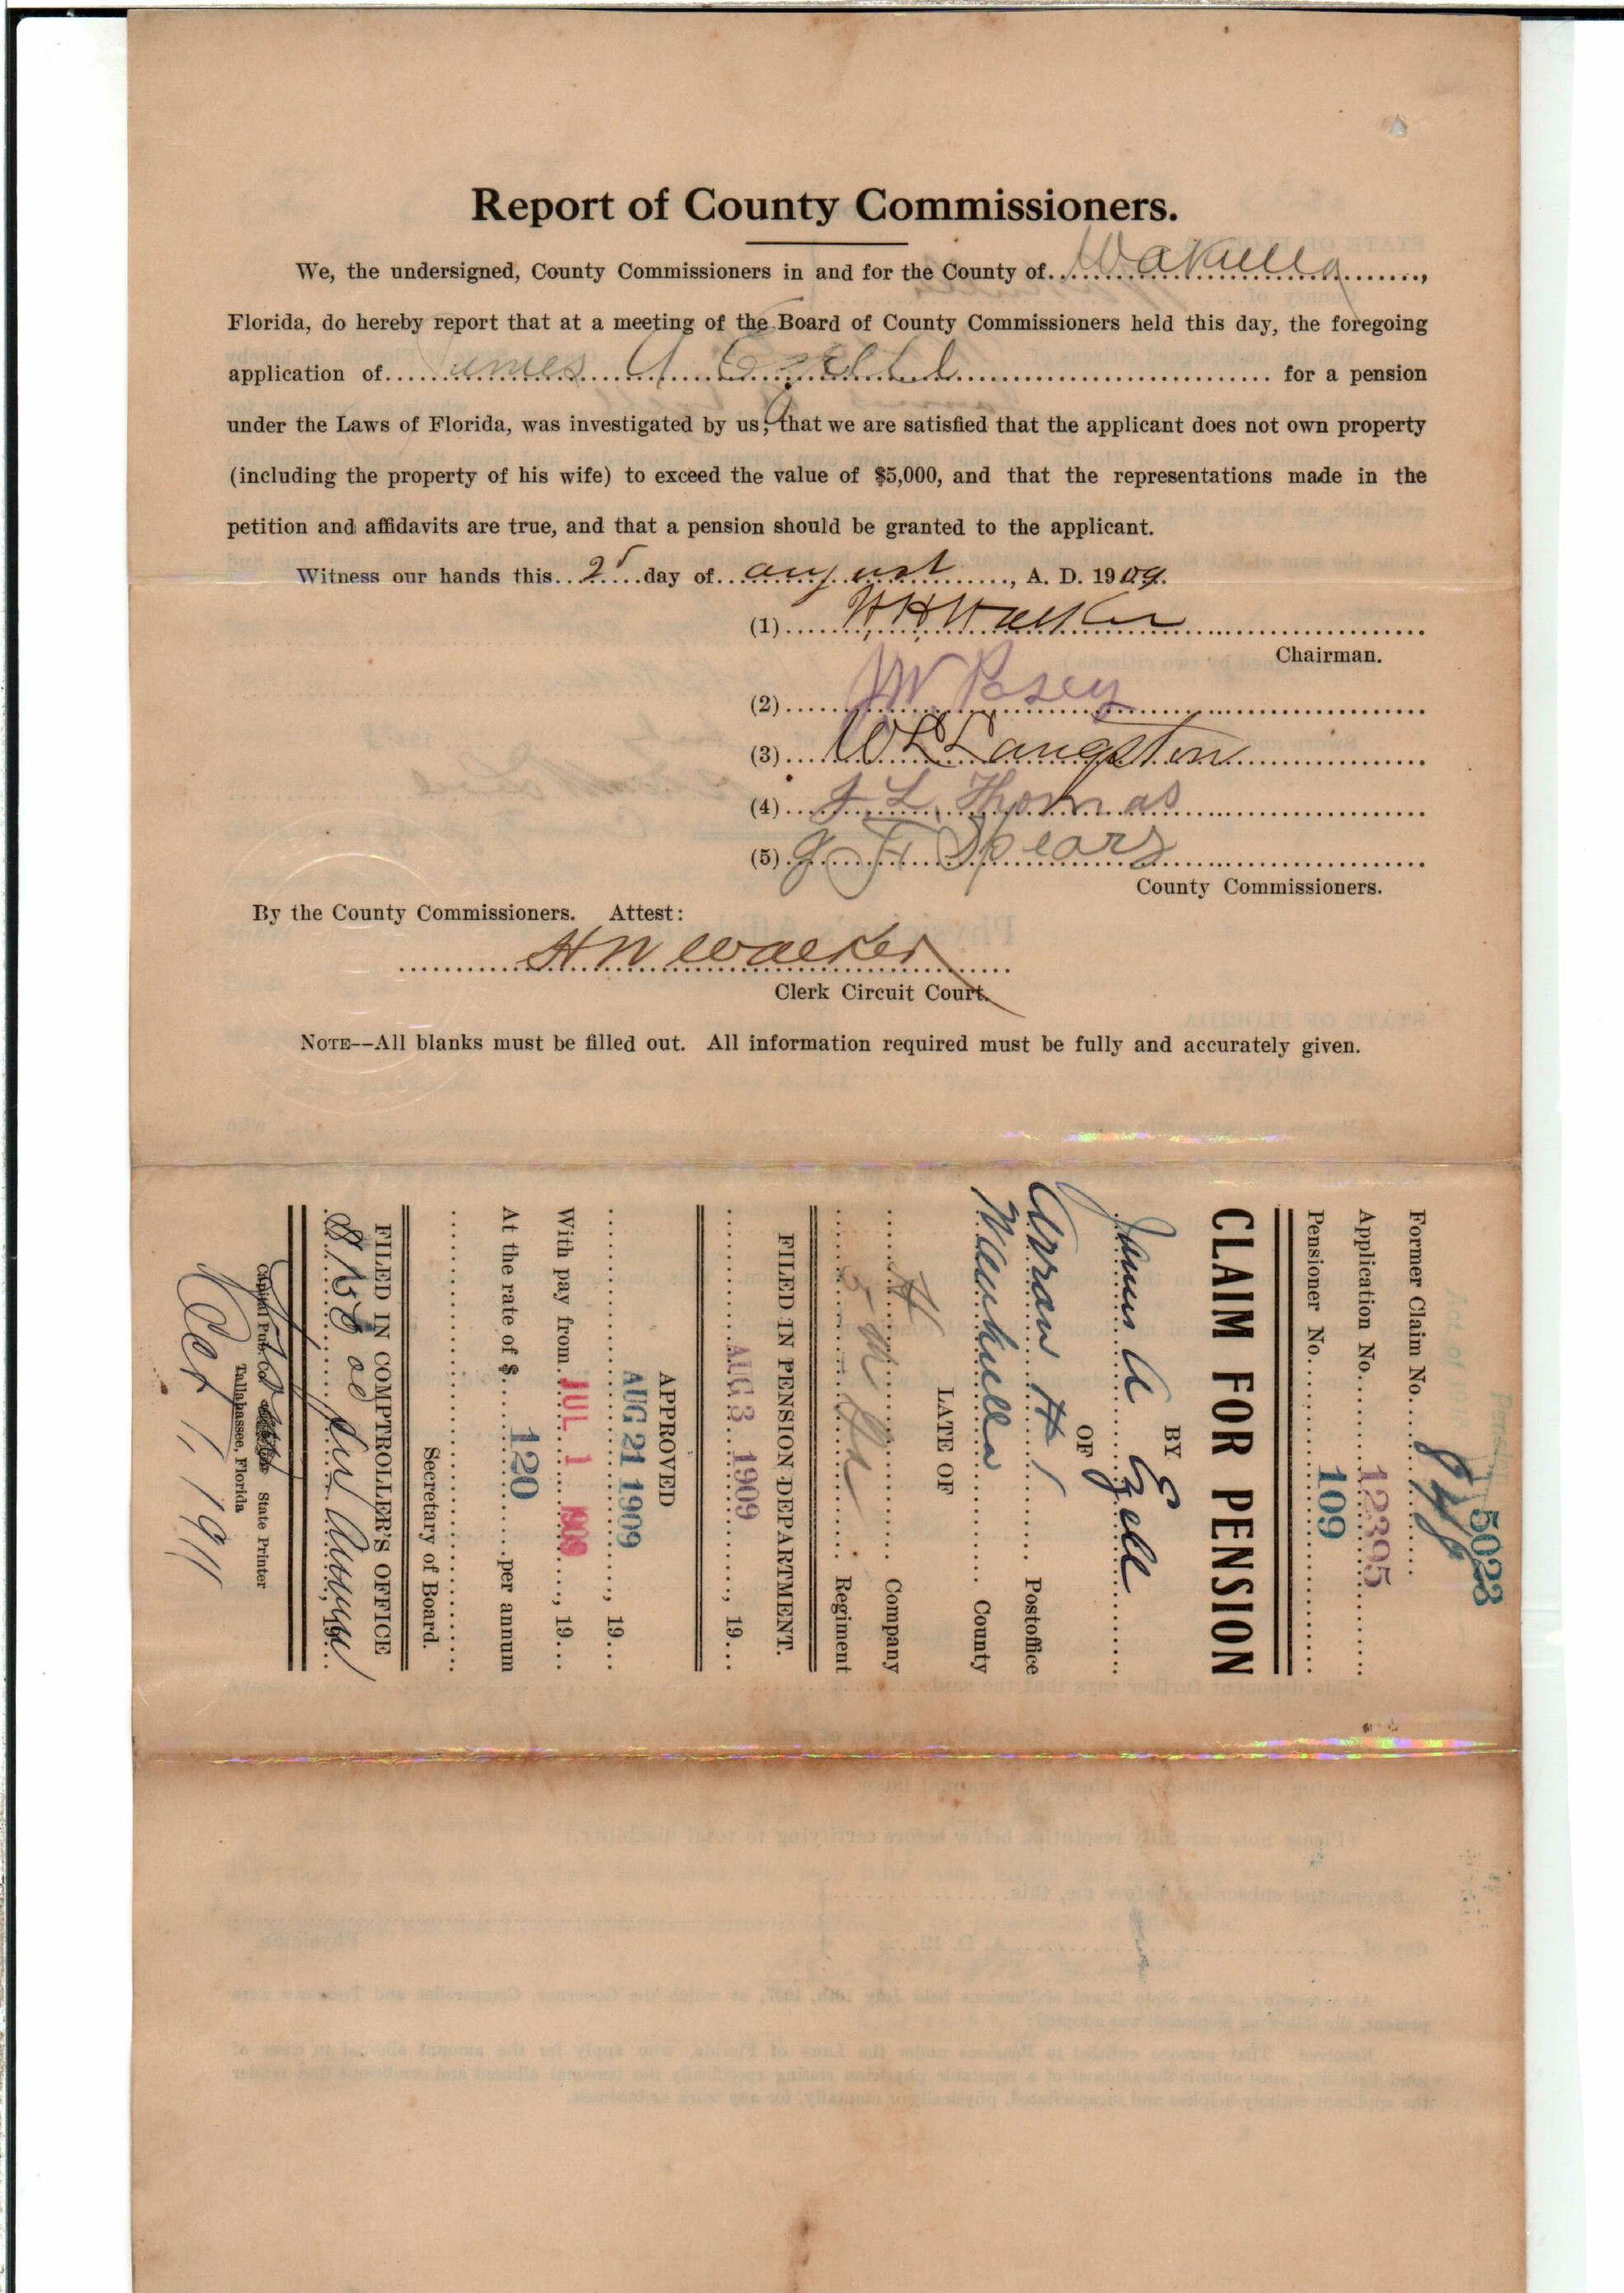 Report of County Commissioners.
We, the undersigned, County Commissioners in and for the County of Wakulla,
Florida, do hereby report that at a meeting of the Board of County Commissioners held this day, the foregoing
application of James A Ezell for a pension
under the Laws of Florida, was investigated by us; that we are satisfied that the applicant does not own property
(including the property of his wife) to exceed the value of $5,000, and that the representations made in the
petition and affidavits are true, and that a pension should be granted to the applicant.
Witness our hands this 2 day of august, A. D. 1909.
(1) W H Walker
Chairman.
(2) J W Posey
(3) W L Langston
(4) J L Thomas
(5) J F Spears
County Commissioners.
By the County Commissioners. Attest:
H N Walker
Clerk Circuit Court.
NOTE--All blanks must be filled out. All information required must be fully and accurately given.
5023
Former Claim No.
Application No. 12395
Pensioner No. 109
CLAIM FOR PENSION
BY
James A Ezell
OF
Arran Postoffice
Waukulla County
LATE OF
H Company
5 Regiment
FILED IN PENSION DEPARTMENT.
AUG 3 1909, 19
APPROVED
AUG 21 1909, 19
With pay from JUL 1 1909, 19
At the rate of $ 120 per annum
Secretary of Board.
FILED IN COMPTROLLER'S OFFICE
19
Capital Pub. Co. State Printer
Tallahassee, Florida
Oct 1, 1911